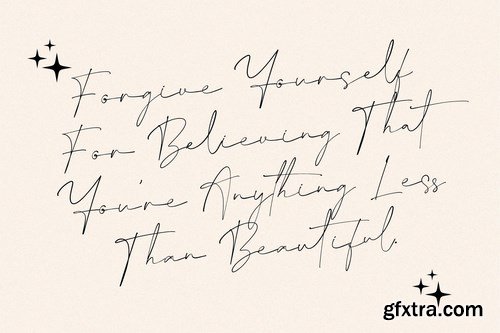 Forgive Yourself
For Believing That
You're Anything Less
Than Beautiful.
gfxtra.com